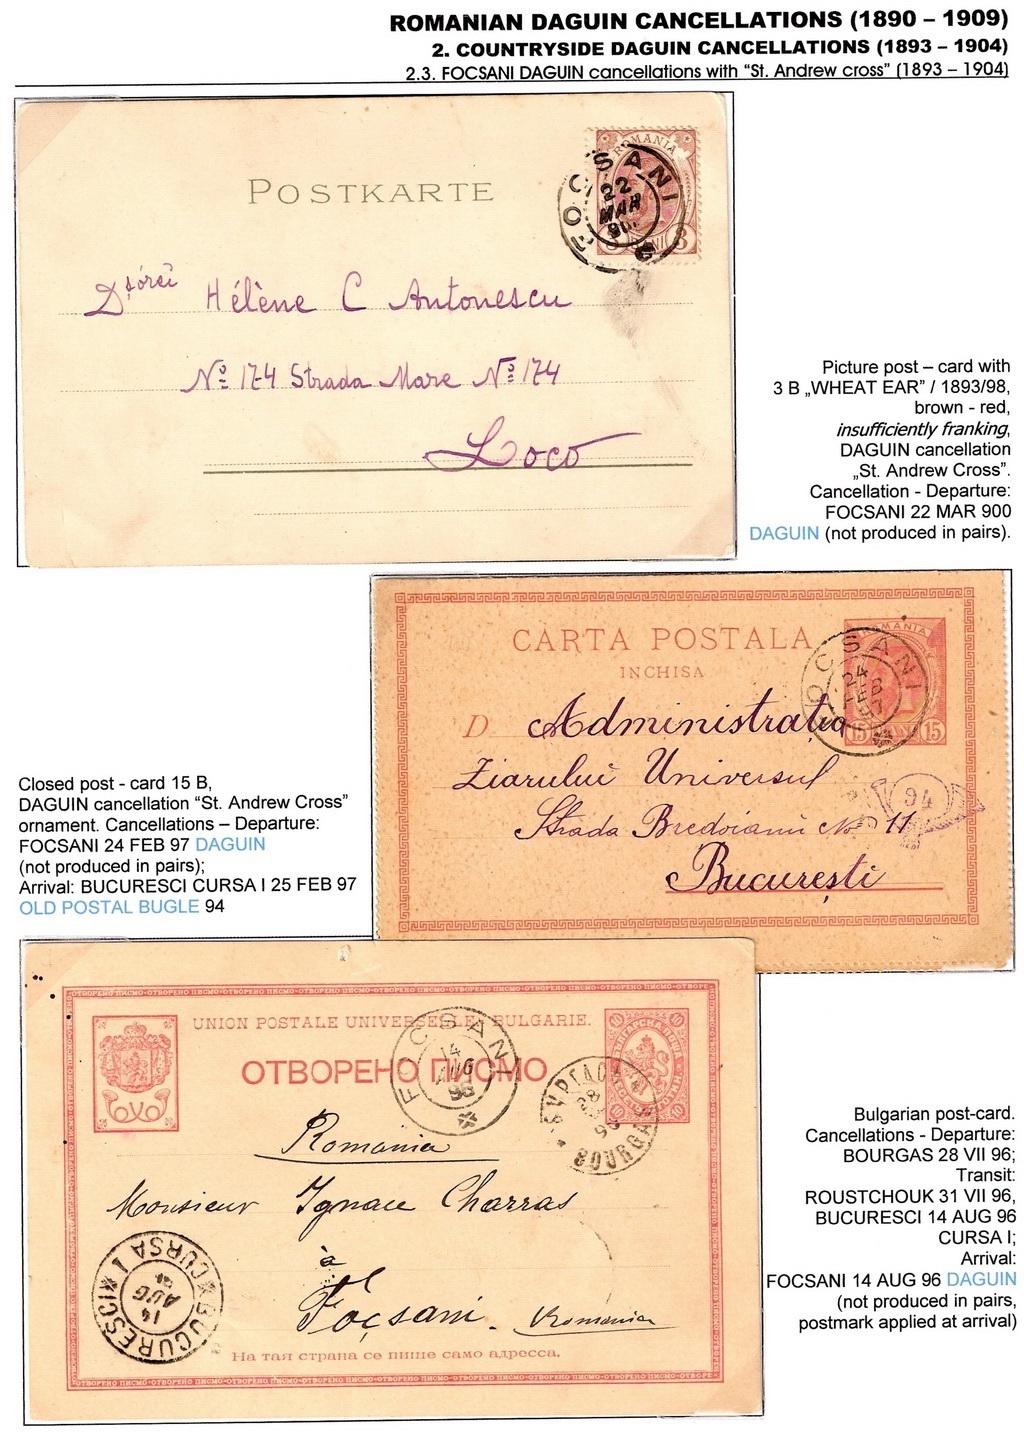 ROMANIAN DAGUIN CANCELLATIONS (1890 – 1909)
2. COUNTRYSIDE DAGUIN CANCELLATIONS (1893 – 1904)
2.3. FOCSANI DAGUIN cancellations with “St. Andrew cross” (1893 – 1904)
POSTKARTE
ROMANIA
FOCSANI
22
MAR
900
3
Dșórei Hélène C Antonescu
No 174 Strada Mare No 174
Loco
Picture post – card with
3 B „WHEAT EAR” / 1893/98,
brown - red,
insufficiently franking,
DAGUIN cancellation
„St. Andrew Cross”.
Cancellation - Departure:
FOCSANI 22 MAR 900
DAGUIN (not produced in pairs).
CARTA POSTALA
INCHISA
ROMANIA
FOCSANI
24
FEB
97
15 BANI 15
D. Administrația
Ziarului Universul
Strada Bredoianu No 11
București
94
Closed post - card 15 B,
DAGUIN cancellation “St. Andrew Cross”
ornament. Cancellations – Departure:
FOCSANI 24 FEB 97 DAGUIN
(not produced in pairs);
Arrival: BUCURESCI CURSA I 25 FEB 97
OLD POSTAL BUGLE 94
UNION POSTALE UNIVERSELLE. BULGARIE.
ОТВОРЕНО ПИСМО
FOCSANI
14
AUG
96
10 10
БУРГАСЪ
28
96
BOURGAS
10 10
Romania
Monsieur Ignace Charras
à
Focşani - Romania
BUCURESCI
CURSA I
14
AUG
На тая страна се пише само адресса.
Bulgarian post-card.
Cancellations - Departure:
BOURGAS 28 VII 96;
Transit:
ROUSTCHOUK 31 VII 96,
BUCURESCI 14 AUG 96
CURSA I;
Arrival:
FOCSANI 14 AUG 96 DAGUIN
(not produced in pairs,
postmark applied at arrival)